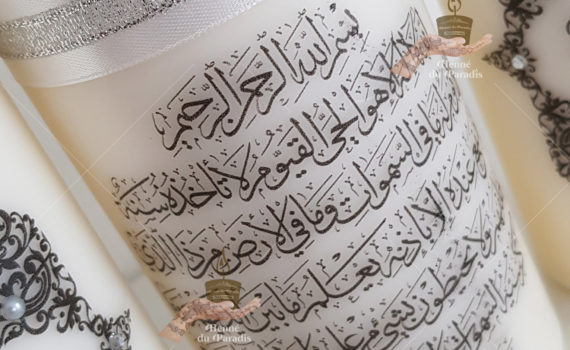 بسم الله الرحمن الرحيم
إلا هو الحي القيوم لا تأخذه سنة
ما في السموات وما في الأرض من ذا الذي
عنده إلا بإذنه يعلم ما بين
ولا يحيطون بشيء من
Henné
du Paradis
Henné
du Paradis